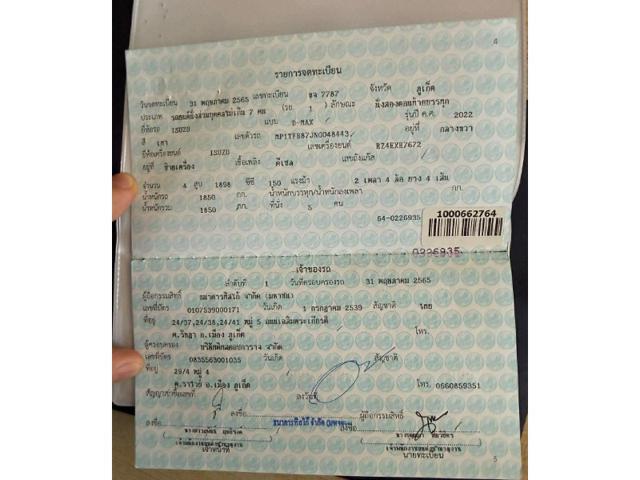 4
รายการจดทะเบียน
วันจดทะเบียน 31 พฤษภาคม 2565 เลขทะเบียน 7787 จังหวัด ภูเก็ต
ประเภท รถยนต์นั่งส่วนบุคคลไม่เกิน 7 คน (รย. 1) ลักษณะ นั่งสองตอนท้ายบรรทุก
ยี่ห้อรถ ISUZU แบบ D-MAX รุ่นปี ค.ศ. 2022
สี เทา เลขตัวรถ MP1TFR87JNG048443 อยู่ที่ กลางขวา
ยี่ห้อเครื่องยนต์ ISUZU เลขเครื่องยนต์ RZ4EXH7672
อยู่ที่ ซ้ายเครื่อง เชื้อเพลิง ดีเซล เลขถังแก๊ส
จำนวน 4 สูบ 1898 ซีซี 150 แรงม้า 2 เพลา 4 ล้อ ยาง 4 เส้น
น้ำหนักรถ 1850 กก. น้ำหนักบรรทุก/น้ำหนักลงเพลา กก.
น้ำหนักรวม 1850 กก. ที่นั่ง 5 คน
64-0226935
1000662764
0226935
เจ้าของรถ
ลำดับที่ 1 วันที่ครอบครองรถ 31 พฤษภาคม 2565
ผู้ถือกรรมสิทธิ์ ธนาคารทิสโก้ จำกัด (มหาชน)
เลขที่บัตร 0107539000171 วันเกิด 1 กรกฎาคม 2539 สัญชาติ ไทย
ที่อยู่ 24/37,24/38,24/41 หมู่ 5 ถนนเฉลิมพระเกียรติ
ต.รัษฎา อ.เมือง ภูเก็ต โทร.
ผู้ครอบครอง จำกัด
เลขที่บัตร 0835563001035 วันเกิด สัญชาติ
ที่อยู่ 29/4 หมู่ 4
ต.ราไวย์ อ.เมือง ภูเก็ต โทร. 0660859351
สัญญาเช่าซื้อเลขที่ ลงวันที่
ลงชื่อ ธนาคารทิสโก้ จำกัด (มหาชน) ผู้ถือกรรมสิทธิ์
ลงชื่อ ลงชื่อ
เจ้าหน้าที่ นายทะเบียน
5